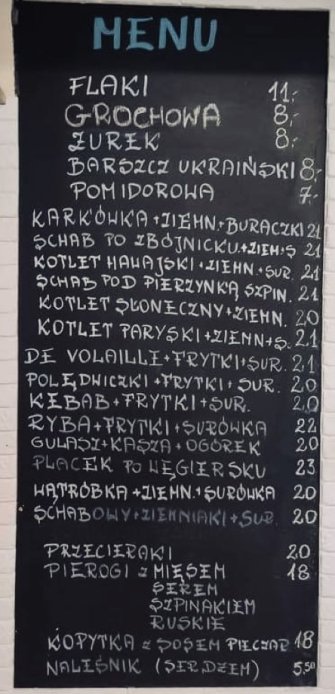 MENU
FLAKI 11,-
GROCHOWA 8,-
ŻUREK 8,-
BARSZCZ UKRAIŃSKI 8,-
POMIDOROWA 7,-
KARKÓWKA + ZIEMN. + BURACZKI 21
SCHAB PO ZBÓJNICKU + ZIEM + S 21
KOTLET HAWAJSKI + ZIEMN. + SUR. 21
SCHAB POD PIERZYNKĄ SZPIN. 21
KOTLET SŁONECZNY + ZIEMN. 20
KOTLET PARYSKI + ZIEMN + S. 21
DE VOLAILLE + FRYTKI + SUR. 21
POLĘDWICZKI + FRYTKI + SUR. 20
KEBAB + FRYTKI + SUR. 20
RYBA + FRYTKI + SURÓWKA 22
GULASZ + KASZA + OGÓREK 20
PLACEK PO WĘGIERSKU 23
WĄTRÓBKA + ZIEMN. + SURÓWKA 20
SCHABOWY + ZIEMNIAKI + SUR. 20
PRZECIERAKI 20
PIEROGI z MIĘSEM 18
SEREM
SZPINAKIEM
RUSKIE
KOPYTKA z SOSEM PIECZAR 18
NALEŚNIK (SER, DŻEM) 5,50